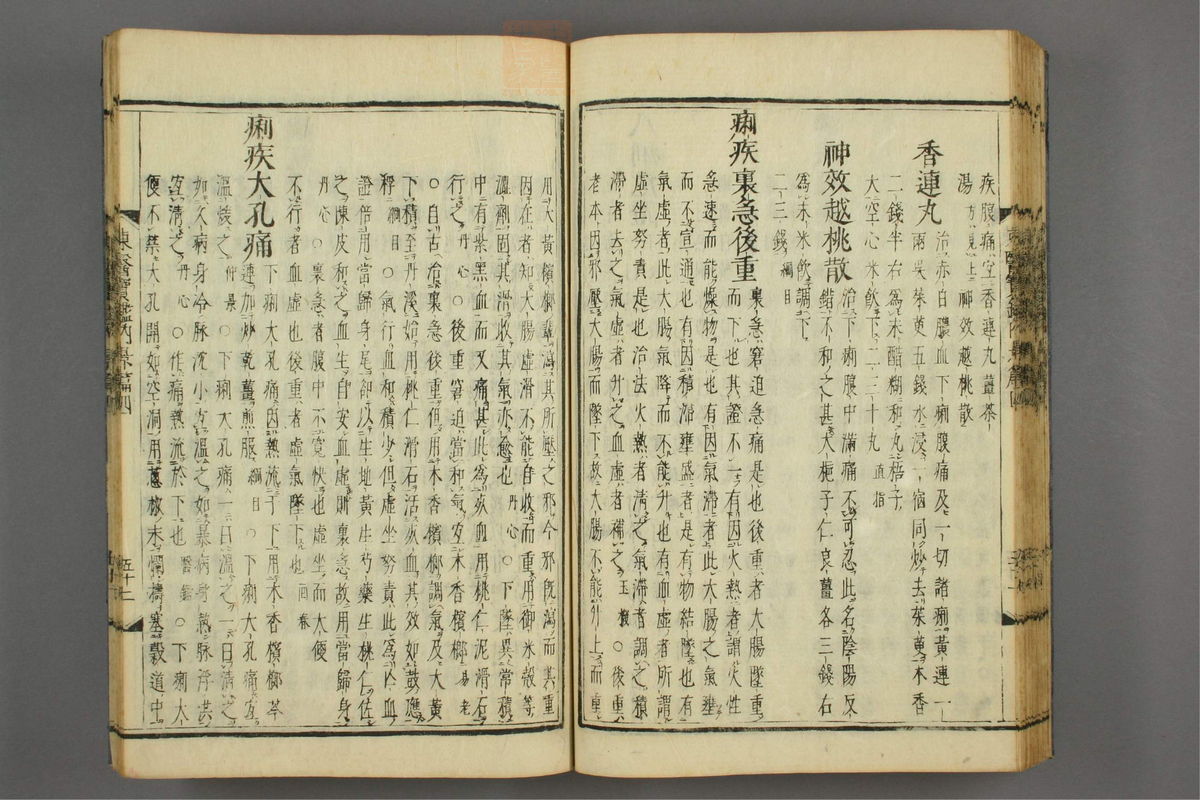 疾腹痛宜香連丸薑茶
湯方見上神效越桃散
香連丸治赤白膿血下痢腹痛及一切諸痢黃連一
兩吳茱萸五錢水浸一宿同炒去茱萸木香
二錢半右爲末醋糊和丸梧子
大空心米飮下二三十丸直指
神效越桃散治下痢腹中滿痛不可忍此名陰陽反
錯不和之甚大梔子仁良薑各三錢右
爲末米飮調下
二三錢綱目
痢疾裏急後重裏急窘迫急痛是也後重者大腸墜重
而下也其證不一有因火熱者謂火性
急速而能燥物是也有因氣滯者此大腸之氣壅
而不宣通也有因積滯壅盛者是有物結墜也有
氣虛者此大腸氣降而不能升也有血虛者所謂
虛坐努責是也治法火熱者淸之氣滯者調之積
滯者去之氣虛者升之血虛者補之玉機○後重
者本因邪壓大腸而墜下故大腸不能升上而重
用大黃檳榔輩瀉其所壓之邪今邪旣瀉而其重
因在者知大腸虛滑不能自收而重用御米殼等
澁劑固其滑收其氣亦愈也丹心○下墜異常積
中有紫黑血而又痛甚此爲死血用桃仁泥滑石
行之丹心○後重窘迫當和氣宜木香檳榔易老
○自古治裏急後重但用木香檳榔調氣及大黃
下積至丹溪始用桃仁滑石活死血其效如鼓應
桴綱目○氣行血和積少但虛坐努責此爲亡血
證倍用當歸身尾却以生地黃生芍藥生桃仁佐
之陳皮和之血生自安血虛則裏急故用當歸身
丹心○裏急者腹中不寬快也虛坐而大便
不行者血虛也後重者虛氣墜下也回春
痢疾大孔痛下痢大孔痛因熱流于下用木香檳榔芩
連加炒乾薑煎服綱目○下痢大孔痛宜
溫熨之仲景○下痢大孔痛一曰溫之一曰淸之
如久病身冷脉沈小宜溫之如暴病身熱脉浮洪
宜淸之丹心○作痛熱流於下也醫鑑○下痢大
便不禁大孔開如空洞用葱椒末爛搗塞穀道中
東醫寶鑑內景篇四
五十二